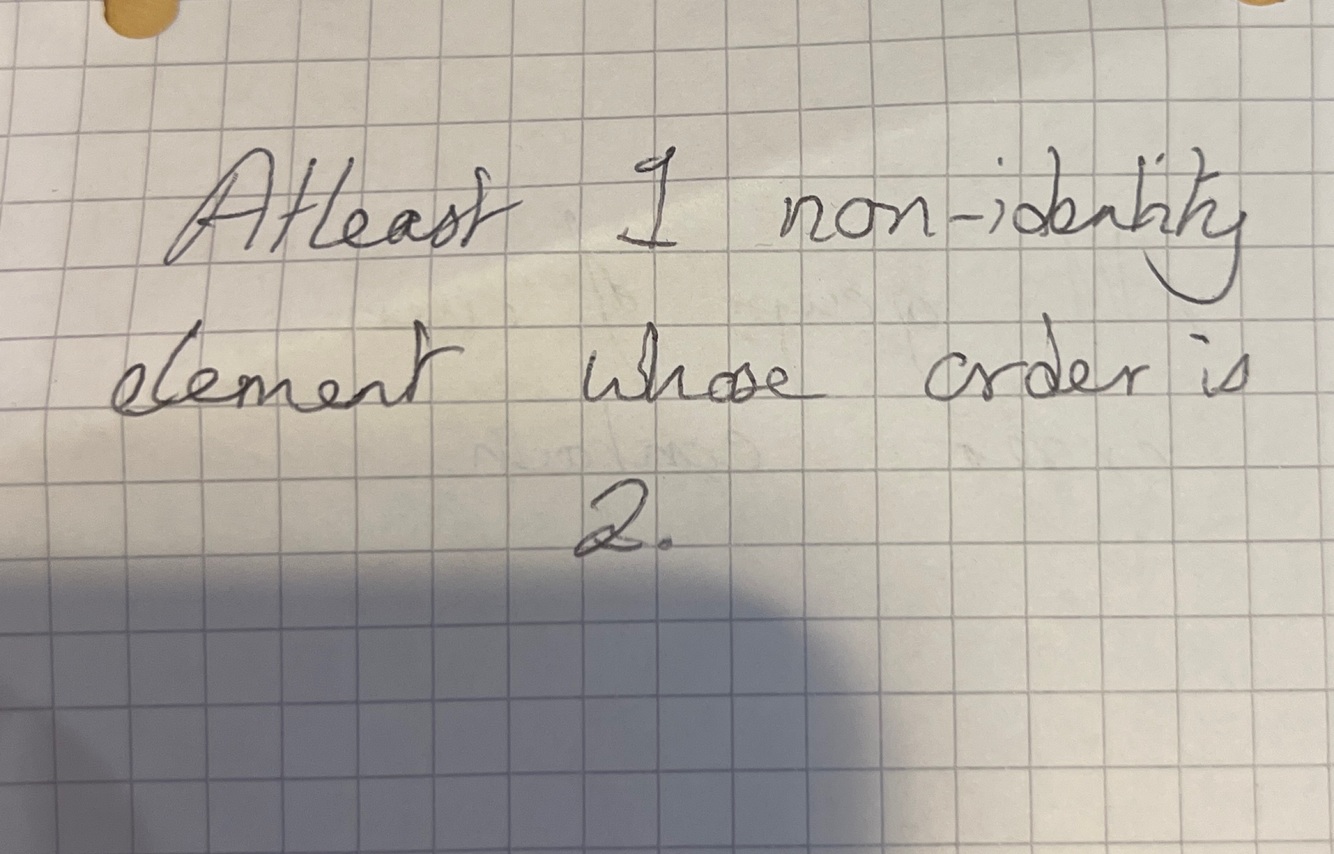 Atleast 1 non-identity
element whose order is
2.